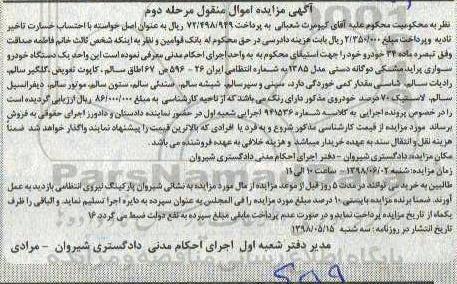 آگهی مزایده اموال منقول مرحله دوم
نظر به محکومیت محکوم علیه آقای کیومرث شعبانی به پرداخت ۷۲/۴۹۸/۹۴۹ ریال به عنوان اصل خواسته با احتساب خسارت تاخیر
تادیه وپرداخت مبلغ ۲/۳۵۰/۰۰۰ ریال بابت هزینه دادرسی در حق محکوم له بانک قوامین و نظر به اینکه شخص ثالث خانم فاطمه صداقت
وفق تبصره ماده ۳۴ خودرو خود را جهت استیفای محکوم به به واحد اجرای احکام مدنی معرفی نموده است این واحد یک دستگاه خودرو
سواری پراید مشکی دوگانه دستی مدل ۱۳۸۵ به شماره انتظامی ایران ۲۶ - ۵۹۶ ص ۶۷ اطاق سالم، کاپوت تعویض، گلگیر سالم،
رادیات سالم، شاسی مقدار کمی خوردگی دارد، سینی و سپر سالم، شیشه سالم، صندلی سالم، ستون سالم، موتور سالم، دیفرانسیل
سالم، لاستیک ۷۰ درصد خودروی مذکور دارای رنگ می باشد که از ناحیه کارشناسی به مبلغ ۸۶/۰۰۰/۰۰۰ ریال ارزیابی گردیده است
را در خصوص پرونده اجرایی به کلاسه ۹۴۱۵۳۶ اجرایی شعبه اول در حضور نماینده دادستان و دادورز اجرای حقوقی به فروش
برساند مورد مزایده از قیمت کارشناسی مذکور شروع و به فرد یا افرادی که بالاترین قیمت را پیشنهاد نمایند واگذار خواهد شد ضمناً
هزینه نقل و انتقال سند به عهده خریدار میباشد و هزینه خلافی به عهده فروشنده می باشد.
مکان مزایده: دادگستری شیروان - دفتر اجرای احکام مدنی دادگستری شیروان
زمان مزایده: شنبه ۱۳۹۸/۰۶/۰۲ - ساعت ۱۰ الی ۱۱
طالبین به خرید می توانند در مدت ۵ روز قبل از موعد مزایده از مال مورد مزایده به نشانی شیروان پارکینگ نیروی انتظامی بازدید به عمل
آورند. ضمنا برنده مزایده بایستی ۱۰ درصد مبلغ مورد مزایده را فی المجلس به عنوان سپرده به دایره اجرا تسلیم نماید. و الباقی را ظرف
یکماه از تاریخ مزایده پرداخت نماید و در صورت عدم پرداخت مابقی مبلغ سپرده به نفع دولت ضبط می گردد ۱۶
تاریخ انتشار در روزنامه: سه شنبه ۱۳۹۸/۰۵/۱۵
مدیر دفتر شعبه اول اجرای احکام مدنی دادگستری شیروان - مرادی